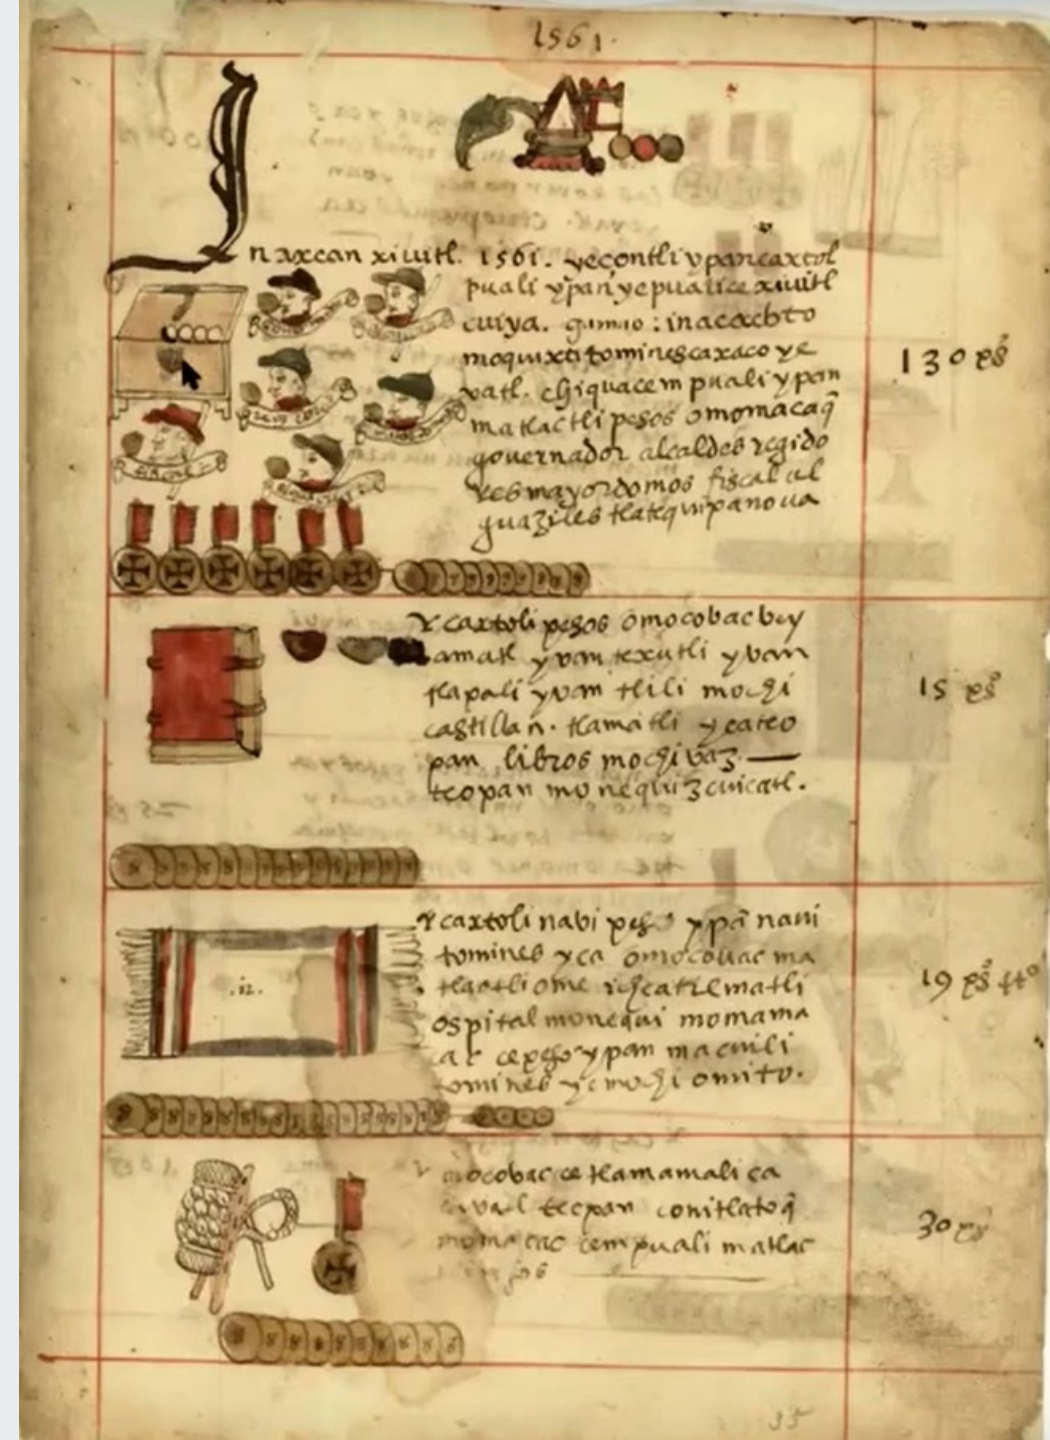 1561.
In axcan xiuitl. 1561. yecontli ypan caxtol
puali ypan yepualice xiuitl
cuiya. gunmio: inacachto
moquixti tomines caxaco ye
vatl. chiquacem puali ypan
matlactli pesos omomacaq̃
governador alcaldes regido
res mayordomos fiscal al
guaziles tlatequipanova
130 ps̊
Y caxtoli pesos omocobac vey
amatl yvan texutli yvan
tlapali yvan tlili mochi
castillan. tlamatli ycateo
pan libros mochivaz —
teopan monequiz cuicatl.
15 ps̊
Y caxtoli navi peso ypã navi
tomines yca omocouac ma
tlactli ome ichcatilmatli
ospital monequi momama
cac ce peso ypan macuili
tomines yc mochi omito.
.12.
19 ps̊ 4 tº
mocobac ce tlamamali ca
tecpan conitlatoq̃
momacac cempuali matlac
30 ps̊
35